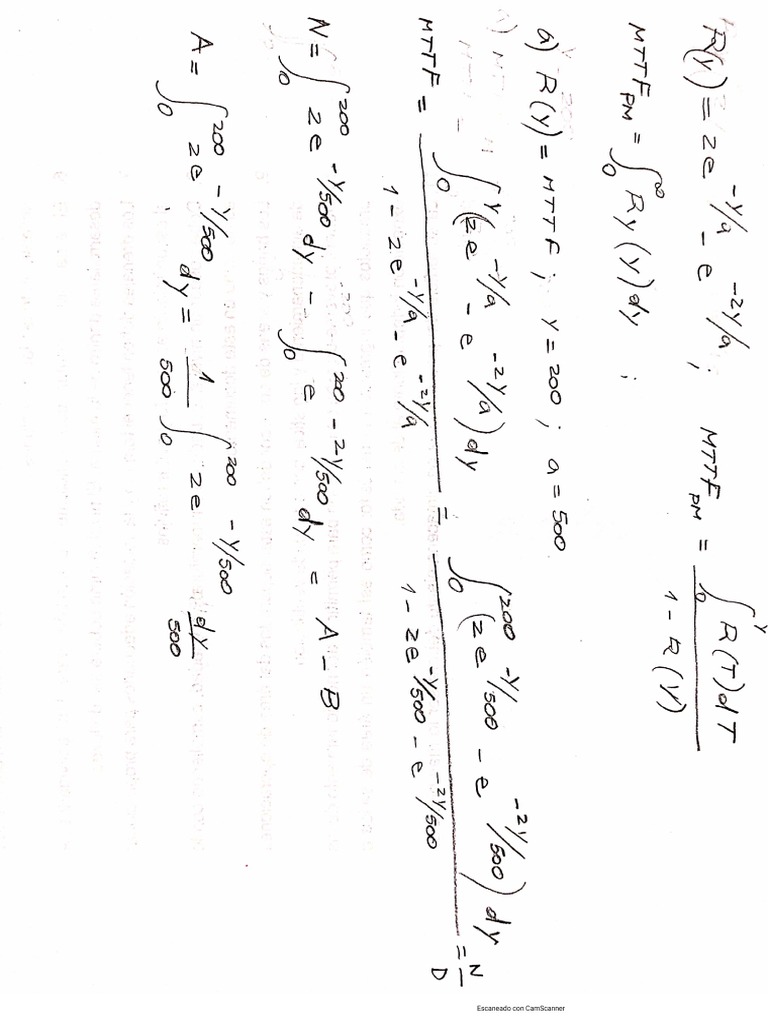 R(y) = 2e^{-y/a} - e^{-2y/a} ; MTTF_{PM} = \frac{\int_0^y R(T)dT}{1 - R(y)}
MTTF_{PM} = \int_0^∞ Ry(y)dy ;
a) R(y) = MTTF ; y = 200 ; a = 500
MTTF = \frac{\int_0^y (2e^{-y/a} - e^{-2y/a})dy}{1 - 2e^{-y/a} - e^{-2y/a}} = \frac{\int_0^{200} (2e^{-y/500} - e^{-2y/500})dy}{1 - 2e^{-y/500} - e^{-2y/500}} = \frac{N}{D}
N = \int_0^{200} 2e^{-y/500} dy - \int_0^{200} e^{-2y/500} dy = A - B
A = \int_0^{200} 2e^{-y/500} dy = \frac{1}{500} \int_0^{200} 2e^{-y/500} \frac{dy}{500}
Escaneado con CamScanner